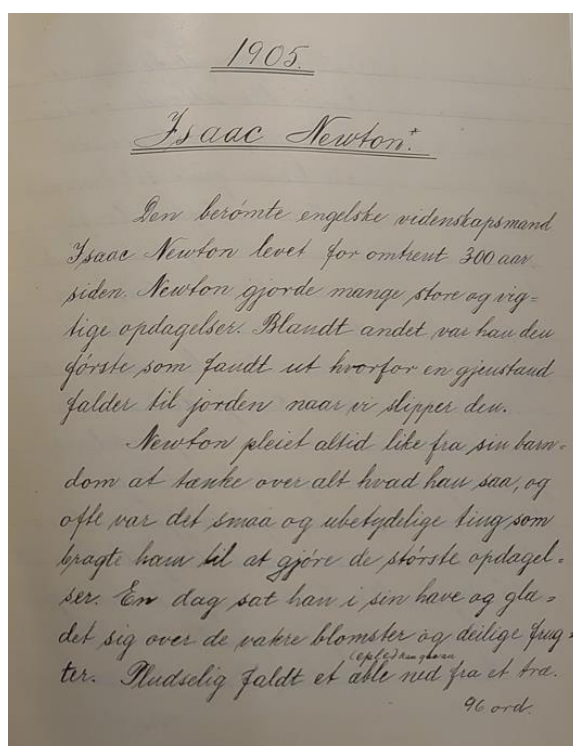 1905.
Isaac Newton.*
Den berömte engelske videnskapsmand
Isaac Newton levet for omtrent 300 aar
siden. Newton gjorde mange store og vig=
tige opdagelser. Blandt andet var han den
förste som fandt ut hvorfor en gjenstand
falder til jorden naar vi slipper den.
Newton pleiet altid like fra sin barn=
dom at tænke over alt hvad han saa, og
ofte var det smaa og ubetydelige ting som
bragte ham til at gjöre de störste opdagel=
ser. En dag sat han i sin have og glæ=
det sig over de vakre blomster og deilige frug=
ter. Pludselig faldt et æble ned fra et træ.
96 ord.